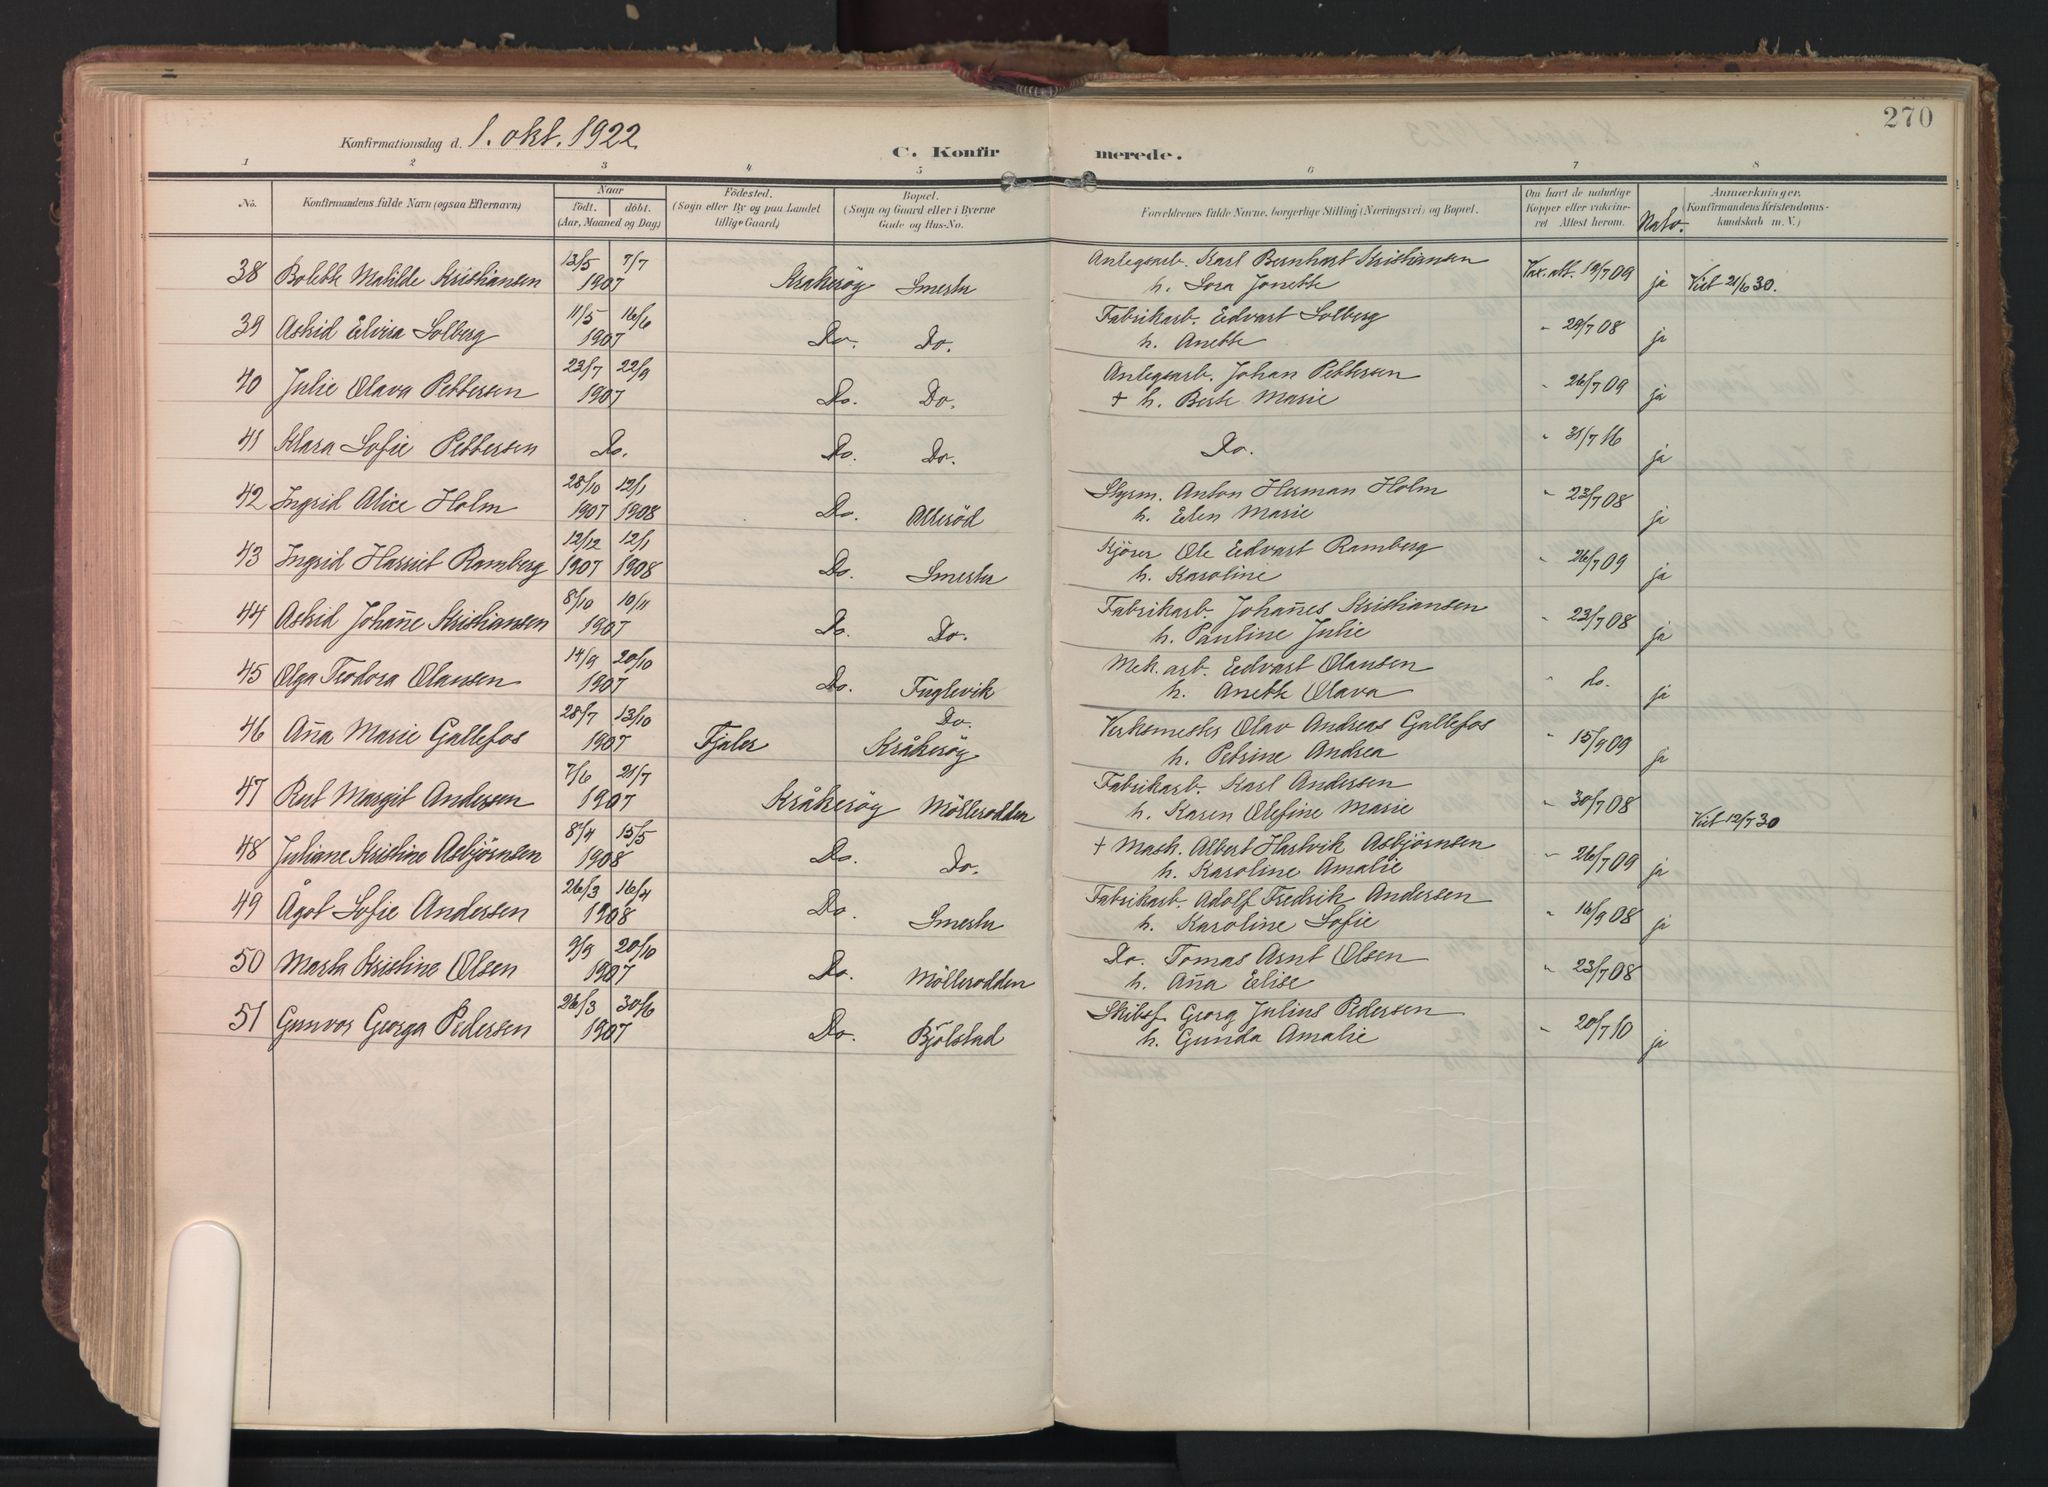 270
Konfirmationsdag d. 1. okt. 1922
C. Konfirmerede.
1 2 3 4 5 6 7 8
No. Konfirmandens fulde Navn (ogsaa Efternavn) Naar født. døbt. (Aar, Maaned og Dag) Födested. (Sogn eller By og paa Landet tillige Gaard) Bopæl. (Sogn og Gaard eller i Byerne Gade og Hus-No. Forældrenes fulde Navne, borgerlige Stilling (Næringsvei) og Bopæl. Om havt de naturlige Kopper eller vakcineret Attest herom. Nalv. Anmærkninger. (Konfirmandens Kristendomskundskab m. V.)
38 Bolette Matilde Kristiansen 13/5 7/7 1907 Kråkerøy Smertu Anlegsarb. Karl Bernhart Kristiansen Vax.att. 19/7 09 ja Vict 21/6 30.
h. Lora Jonette
39 Astrid Elvira Solberg 11/5 16/6 1907 Do. Do. Fabrikarb. Edvart Solberg " 28/7 08 ja
h. Anette
40 Julie Olava Pettersen 23/7 22/9 1907 Do. Do. Anlegsarb. Johan Pettersen " 26/7 09 ja
+ h. Berte Marie
41 Klara Sofie Pettersen Do. Do. Do. Do. " 31/7 16 ja
42 Ingrid Alice Holm 28/10 1907 12/1 1908 Do. Allerød Styrm. Anton Herman Holm " 23/7 08 ja
h. Elen Marie
43 Ingrid Harriet Ramberg 12/12 1907 12/1 1908 Do. Smertu Kjører Ole Edvart Ramberg " 26/7 09 ja
h. Karoline
44 Astrid Johañe Kristiansen 8/10 10/11 1907 Do. Do. Fabrikarb. Johañes Kristiansen " 23/7 08 ja
h. Pauline Julie
45 Olga Teodora Olausen 14/9 20/10 1907 Do. Fuglevik Mek. arb. Edvart Olausen " do. ja
h. Anette Olava
46 Aña Marie Gallefos 28/7 13/10 1907 Fjaler Do. Kråkerøy Verksmester Olav Andreas Gallefos " 15/9 09 ja
h. Petrine Andrea
47 Rut Margit Andersen 7/6 21/7 1907 Kråkerøy Möllerodden Fabrikarb. Karl Andersen " 30/7 08
h. Karen Olefine Marie Vict 12/7 30
48 Juliane Kristine Asbjørnsen 8/4 15/5 1908 Do. Do. + Mask. Albert Hartvik Asbjørnsen " 26/7 09 ja
h. Karoline Amalie
49 Ågot Sofie Andersen 26/3 16/4 1908 Do. Smertu Fabrikarb. Adolf Fredrik Andersen " 16/9 08 ja
h. Karoline Sofie
50 Marta Kristine Olsen 9/9 20/10 1907 Do. Möllerodden Do. Tomas Arnt Olsen " 23/7 08
h. Aña Elise
51 Gunvor Georga Pedersen 26/3 30/6 1907 Do. Bjölstad Skibsf Georg Julius Pedersen " 20/7 10 ja
h. Gunda Amalie